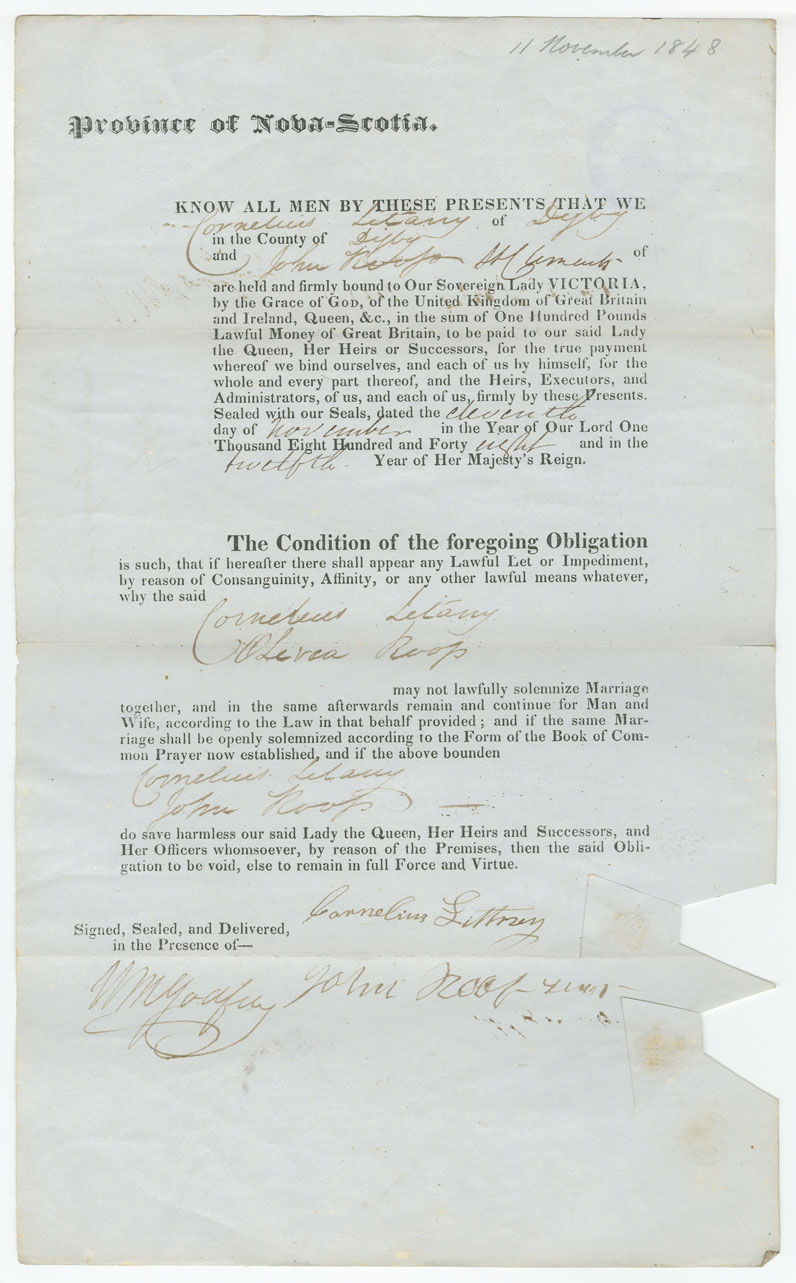 11 November 1848
Province of Nova-Scotia.
KNOW ALL MEN BY THESE PRESENTS THAT WE
Cornelius Letany of Digby
in the County of Digby
and John Roop St Clements of
are held and firmly bound to Our Sovereign Lady VICTORIA,
by the Grace of GOD, of the United Kingdom of Great Britain
and Ireland, Queen, &c., in the sum of One Hundred Pounds
Lawful Money of Great Britain, to be paid to our said Lady
the Queen, Her Heirs or Successors, for the true payment
whereof we bind ourselves, and each of us by himself, for the
whole and every part thereof, and the Heirs, Executors, and
Administrators, of us, and each of us, firmly by these Presents.
Sealed with our Seals, dated the eleventh
day of November in the Year of Our Lord One
Thousand Eight Hundred and Forty eight and in the
twelfth Year of Her Majesty's Reign.
The Condition of the foregoing Obligation
is such, that if hereafter there shall appear any Lawful Let or Impediment,
by reason of Consanguinity, Affinity, or any other lawful means whatever,
why the said
Cornelius Letany
Olivea Roop
may not lawfully solemnize Marriage
together, and in the same afterwards remain and continue for Man and
Wife, according to the Law in that behalf provided; and if the same Mar-
riage shall be openly solemnized according to the Form of the Book of Com-
mon Prayer now established, and if the above bounden
Cornelius Letany
John Roop —
do save harmless our said Lady the Queen, Her Heirs and Successors, and
Her Officers whomsoever, by reason of the Premises, then the said Obli-
gation to be void, else to remain in full Force and Virtue.
Cornelius Littney
Signed, Sealed, and Delivered,
in the Presence of—
Wm Godfrey John Roop